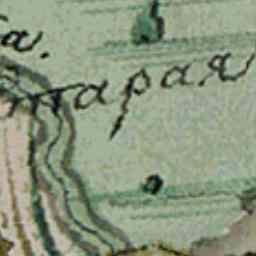 а.
старая